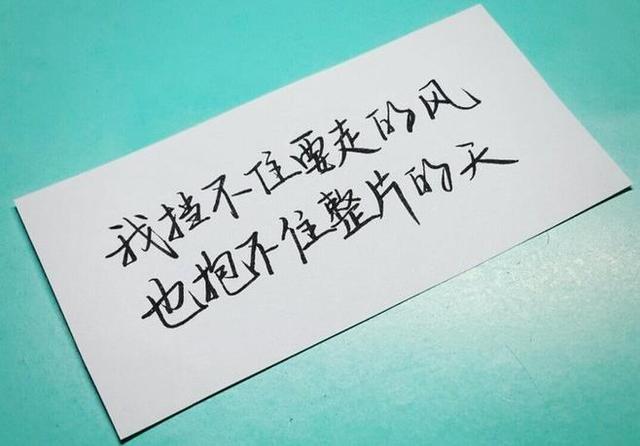 我挡不住要走的风
也抱不住整片的天